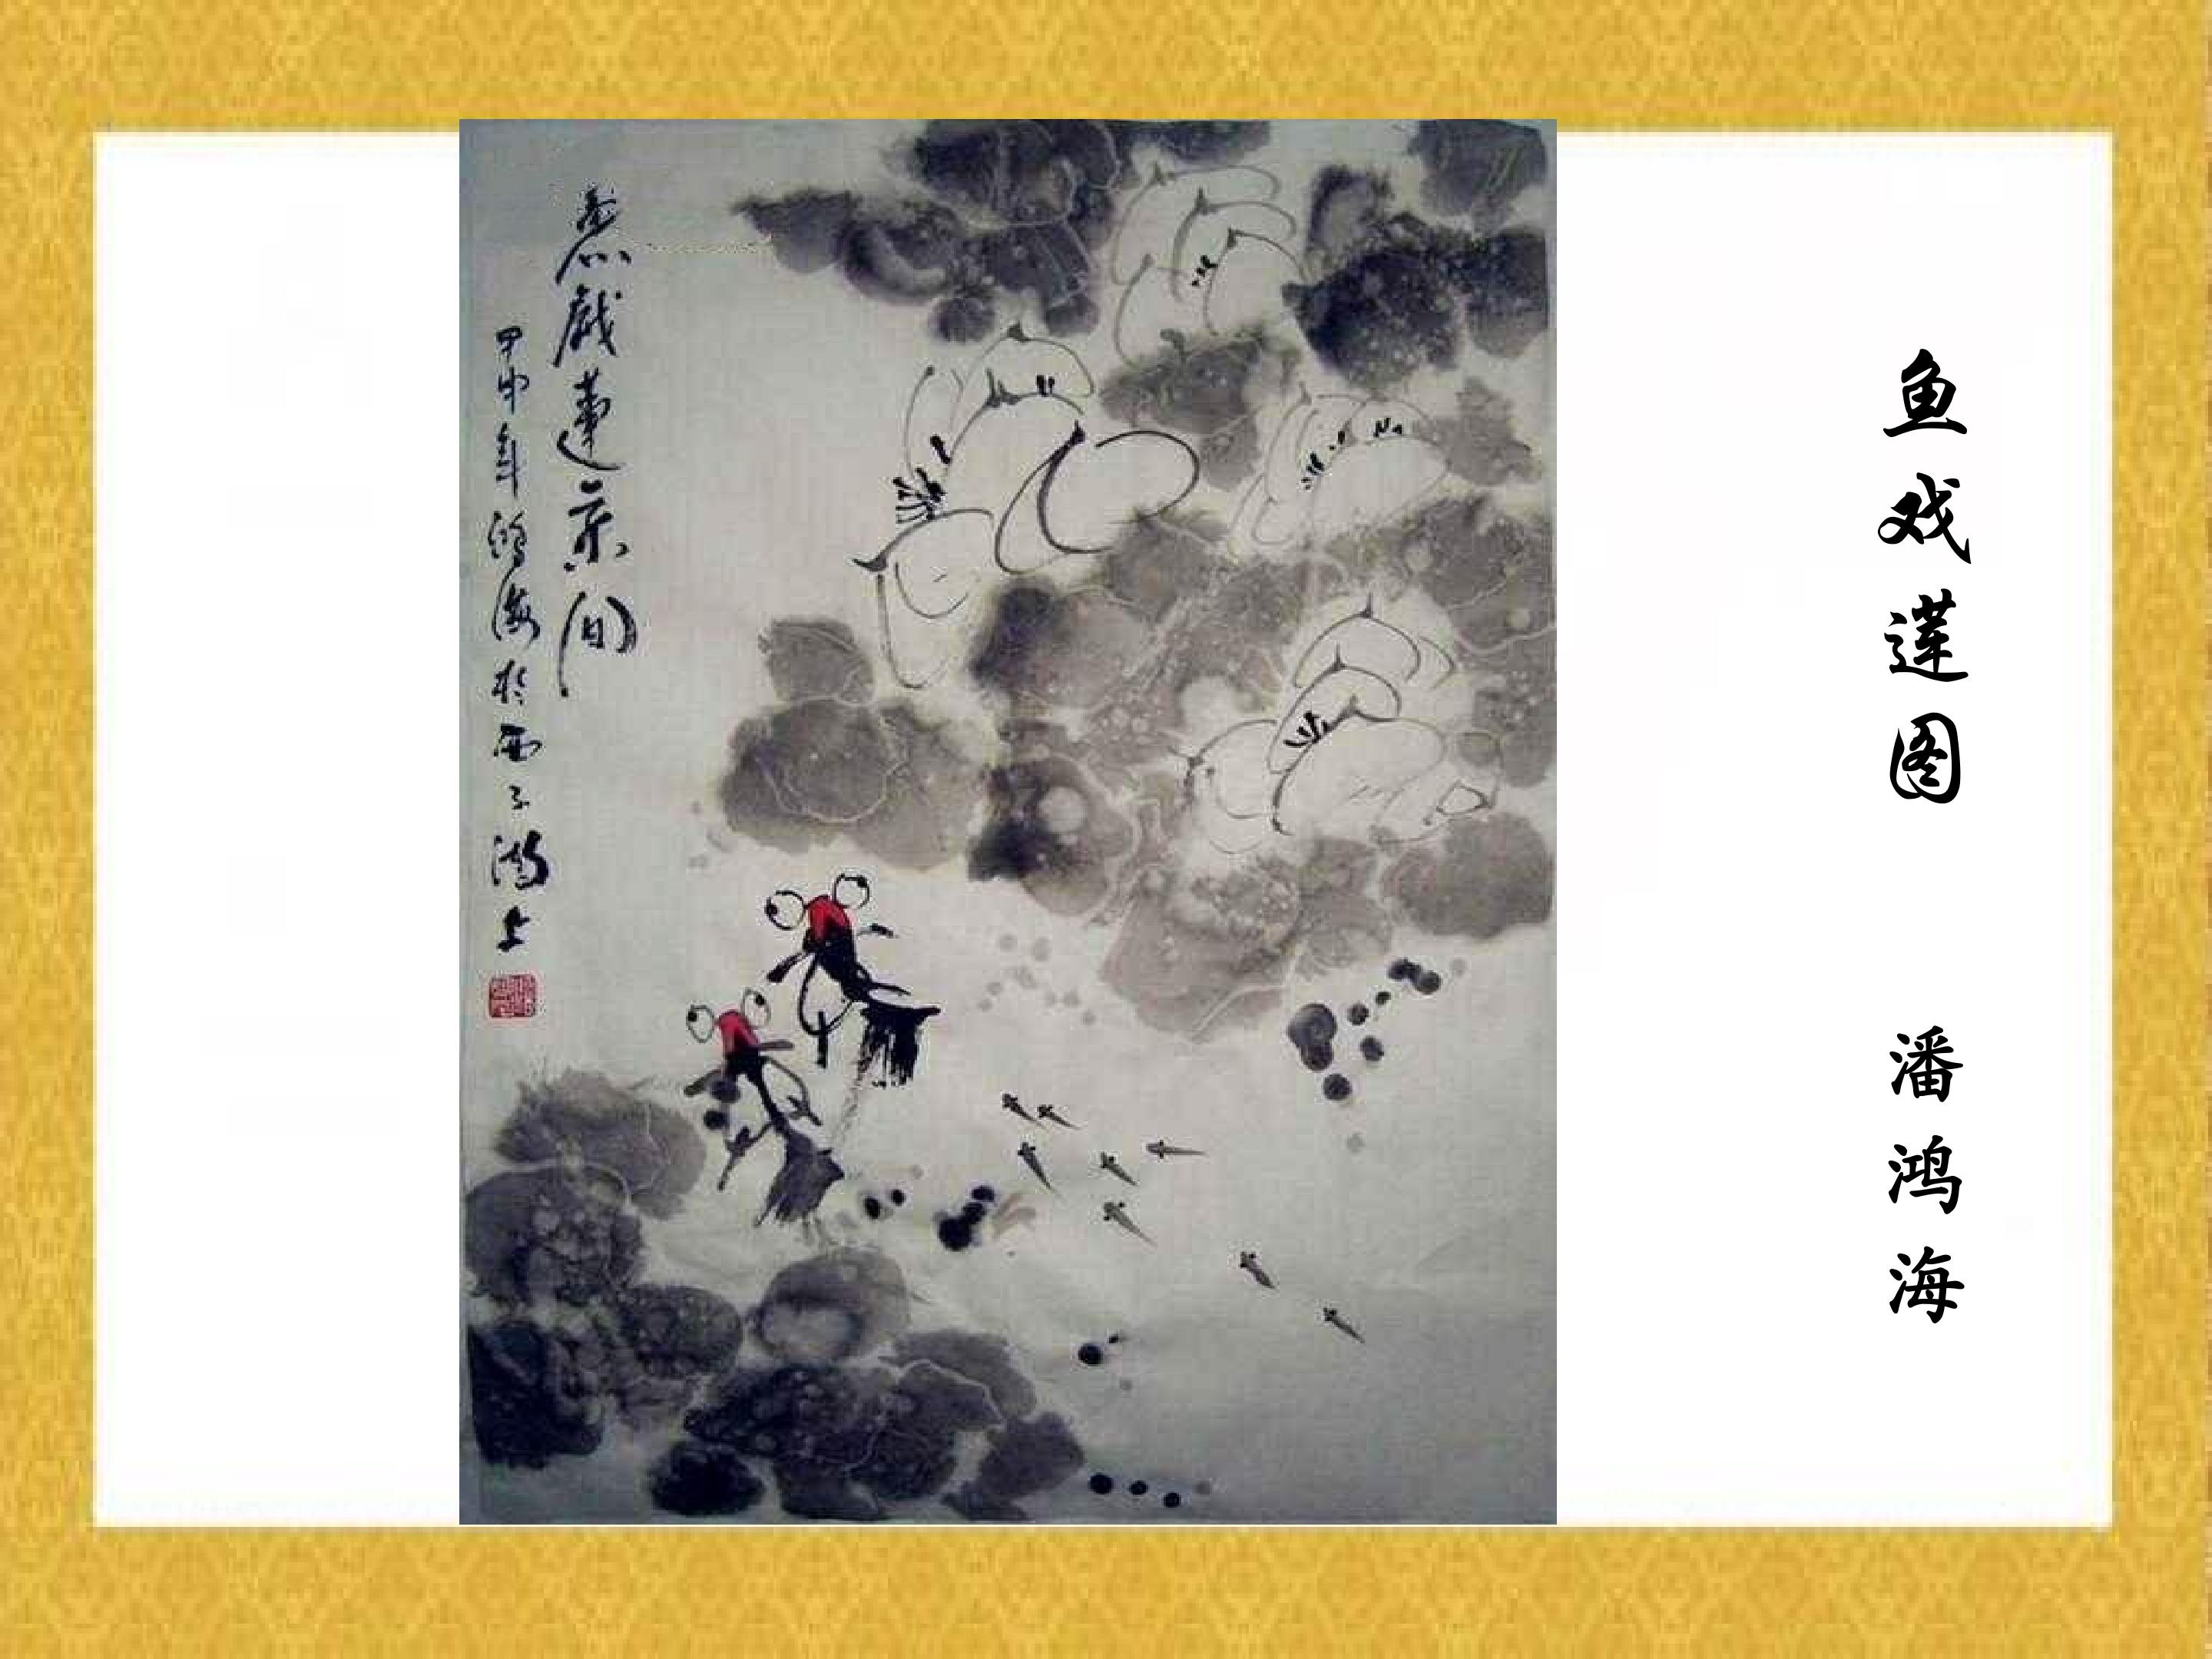 鱼戏莲图
潘鸿海
魚戲蓮葉间
甲申年鸿海於西子湖上